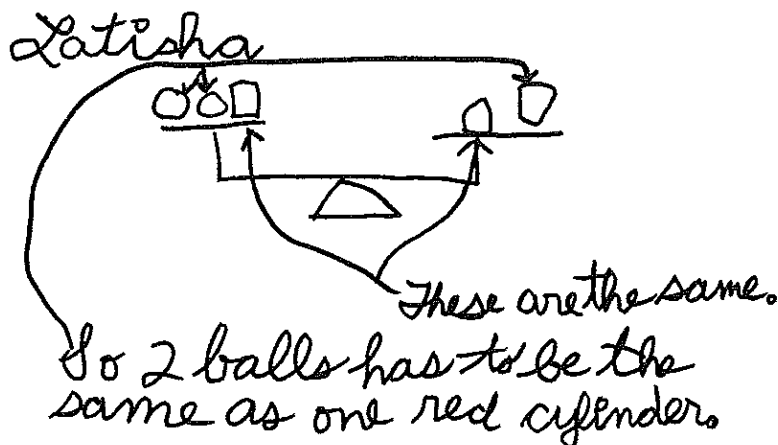 Latisha
These are the same.
So 2 balls has to be the
same as one red cylinder.